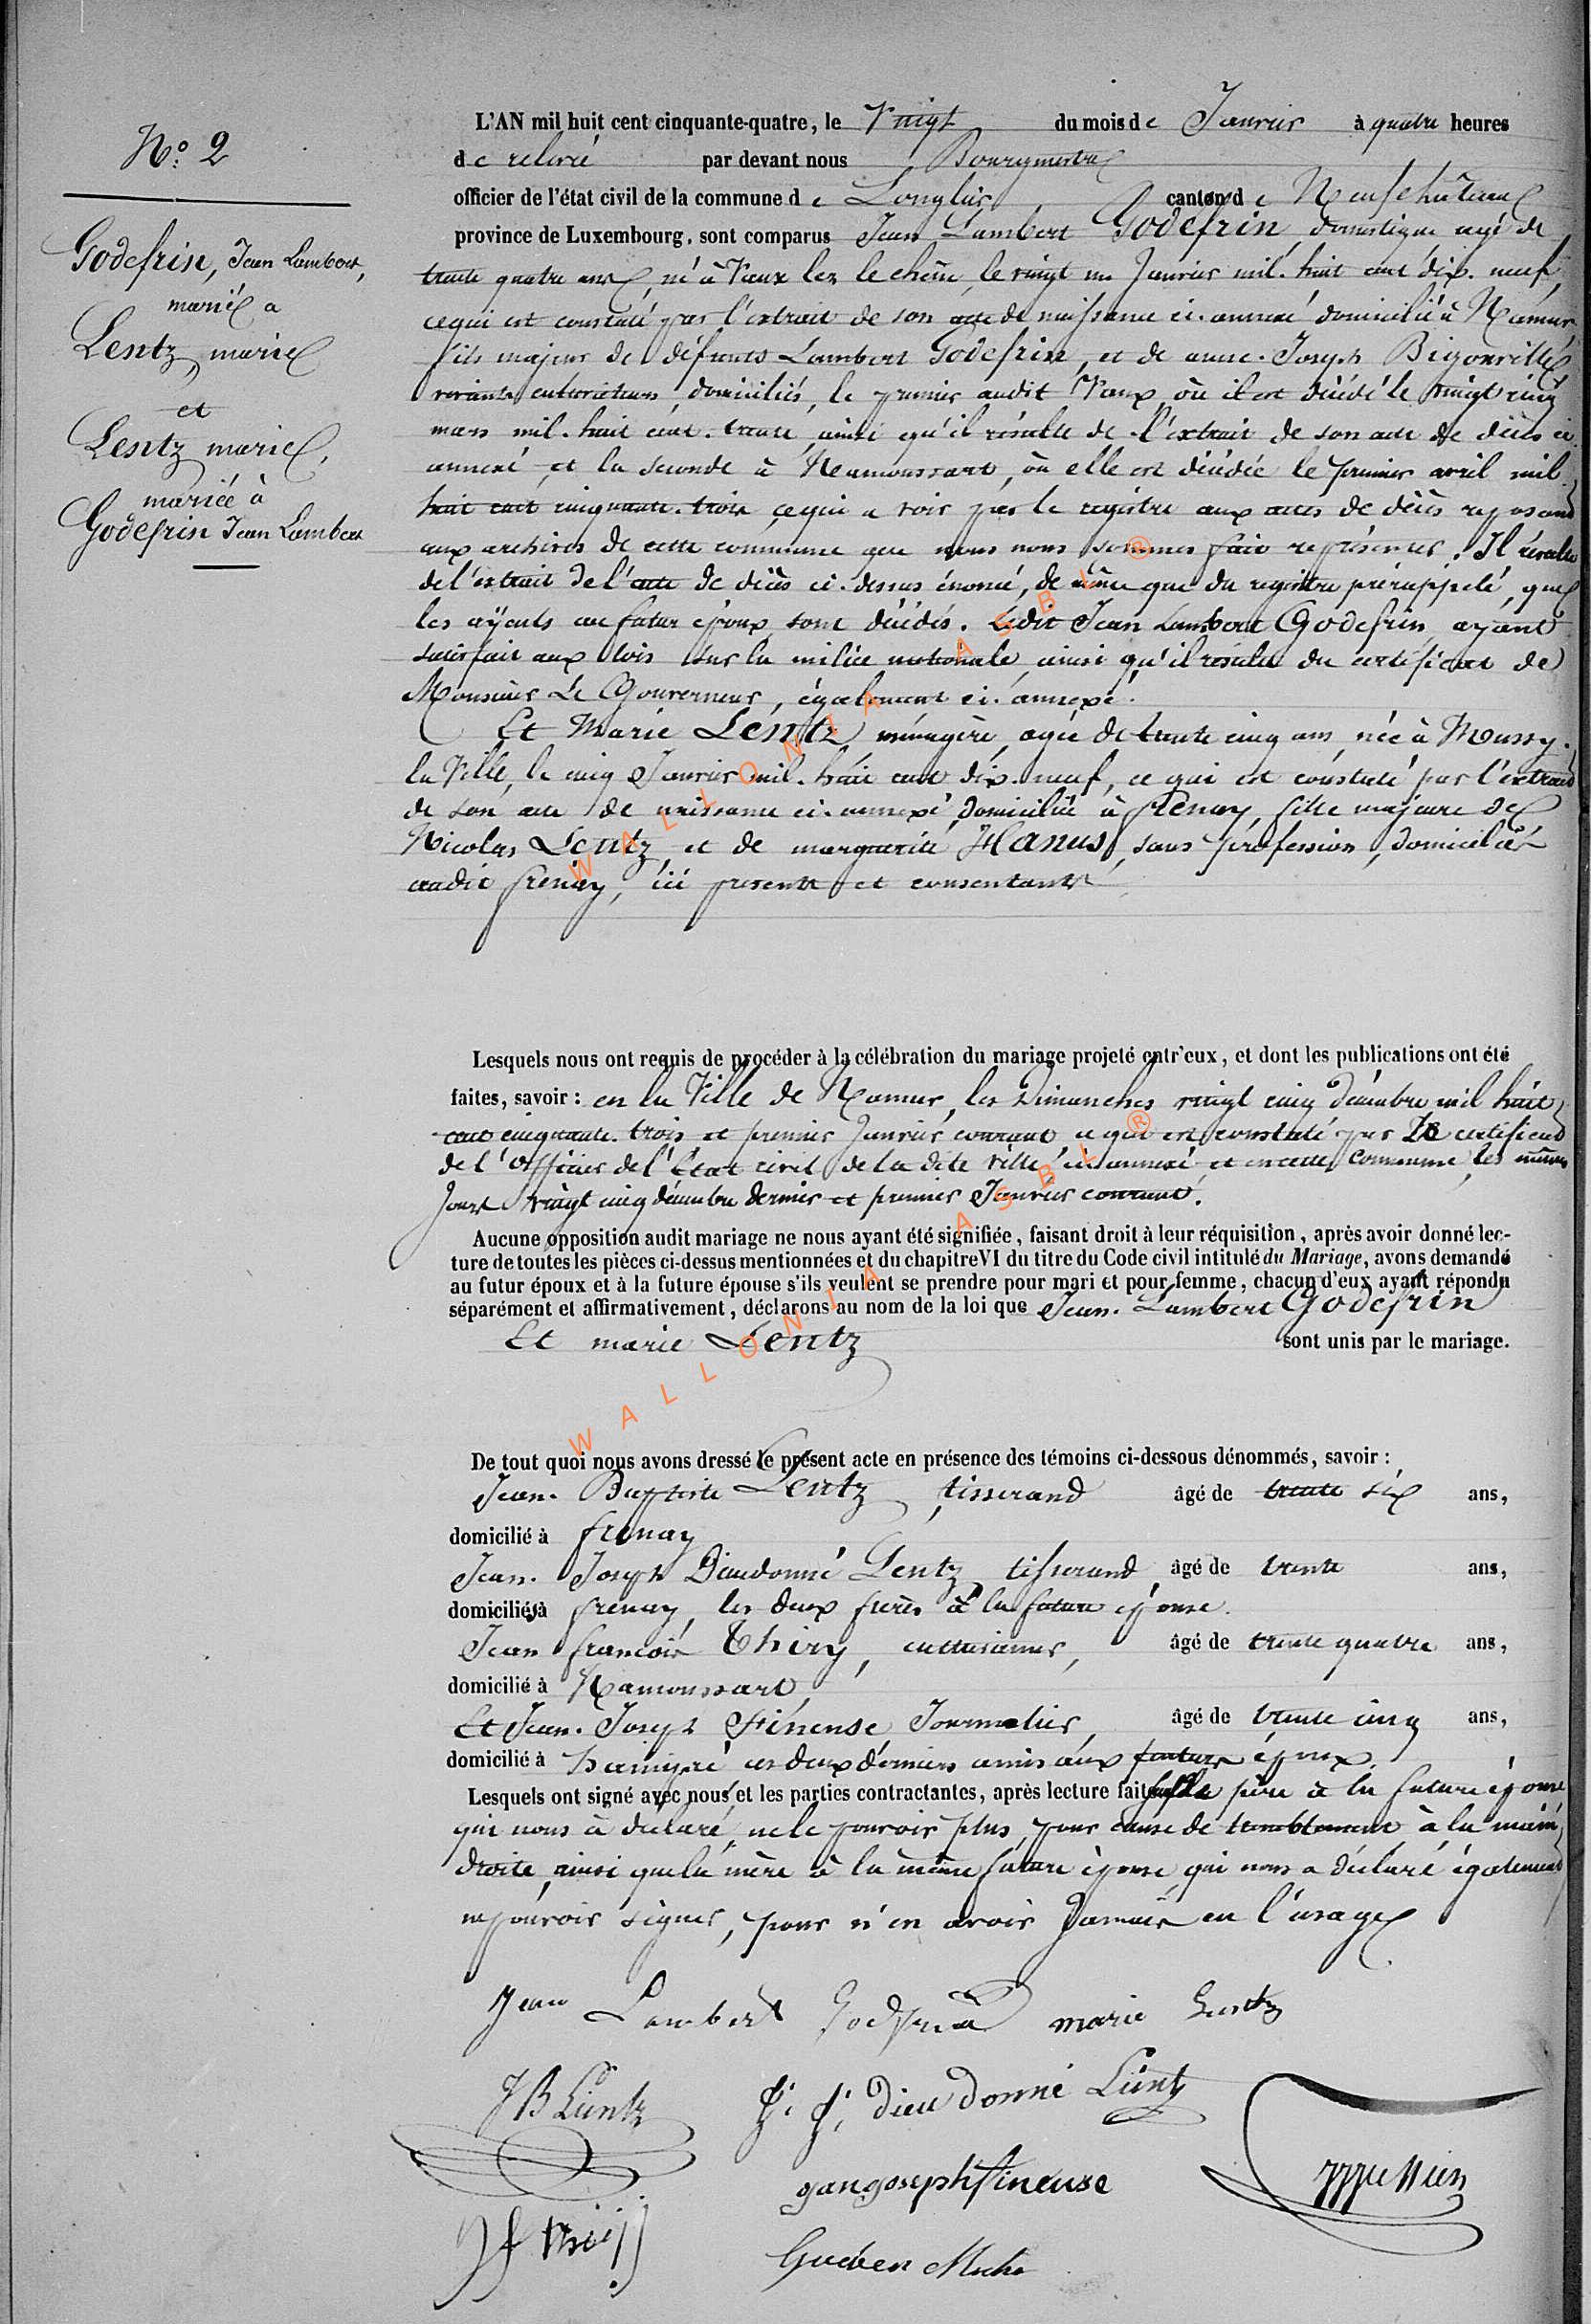 N.° 2
Godefrin, Jean Lambert,
marié a
Lentz, marie
et
Lentz marie,
mariée à
Godefrin Jean Lambert
L'AN mil huit cent cinquante-quatre, le Vingt du mois de Janvier à quatre heures
de relevé par devant nous Bourgmestre
officier de l'état civil de la commune de Longlier, canton de Neufchâteau
province de Luxembourg, sont comparus Jean Lambert Godefrin, domestique agé de
trente quatre ans, né à Vaux lez le chêne, le vingt un Janvier mil. huit cent dix. neuf,
ce qui est constaté par l'extrait de son acte de naissance ci. annexé domicilié à Namur
fils majeur de défunts Lambert Godefrin, et de anne. Joseph Bigonville,
vivants cultivateurs, domiciliés, le premier audit Vaux où il est décédé le vingt cinq
mars mil. huit cent. trente, ainsi qu'il résulte de l'extrait de son acte de décès ci
annexé, et la seconde à Neamoussart, où elle est décédée le premier avril mil
huit cent cinquante. trois, ce qui a voir par le registre aux actes de décès reposant
aux archives de cette commune que nous nous sommes fait représenter. Il résulte
de l'extrait de l'acte de décès ci. dessus énoncé, de même que du registre prérappelé, que
les ayeuls au futur époux, sont décédés. Ledit Jean Lambert Godefrin, ayant
satisfait aux lois sur la milice nationale, ainsi qu'il résulte du certificat de
Monsieur Le Gouverneur, également ci. annexé.
Et Marie Lentz, ménagère, agée de trente cinq ans, née à Mussy.
la Ville, le cinq Janvier mil. huit cent dix. neuf, ce qui est constaté par l'extrait
de son acte de naissance ci. annexé, domiciliée à frenay, fille majeure de
Nicolas Lentz, et de marguerite Hanus, sans profession, domiciliés
audit frenay, ici presents et consentants
Lesquels nous ont requis de procéder à la célébration du mariage projeté entr'eux, et dont les publications ont été
faites, savoir : en la Ville de Namur, les Dimanches vingt cinq décembre mil huit
cent cinquante. trois et premier Janvier courant, ce qui est constaté par le certificat
de l'Officier de l'État civil de la dite ville ci annexé et en cette commune, les mêmes
Jours vingt cinq décembre dernier et premier Janvier courant.
Aucune opposition audit mariage ne nous ayant été signifiée, faisant droit à leur réquisition, après avoir donné lec-
ture de toutes les pièces ci-dessus mentionnées et du chapitre VI du titre du Code civil intitulé du Mariage, avons demandé
au futur époux et à la future épouse s'ils veulent se prendre pour mari et pour femme, chacun d'eux ayant répondu
séparément et affirmativement, déclarons au nom de la loi que Jean. Lambert Godefrin
Et marie Lentz sont unis par le mariage.
De tout quoi nous avons dressé le présent acte en présence des témoins ci-dessous dénommés, savoir :
Jean. Baptiste Lentz, tisserand âgé de trente six ans,
domicilié à frenay
Jean. Joseph Dieudonné Lentz, tisserand, âgé de trente ans,
domiciliés à frenay, les deux frères à la future épouse.
Jean françois Thiry, cultivateur, âgé de trente quatre ans,
domicilié à Namoussart,
Et Jean. Joseph Fineuse Journalier, âgé de trente cinq ans,
domicilié à hamipré, ces deux derniers amis aux futurs époux.
Lesquels ont signé avec nous et les parties contractantes, après lecture faite, père à la future épouse
qui nous à déclaré, ne le pouvoir plus, pour cause de tremblement à la main
droite, ainsi que la mère à la même future épouse, qui nous a déclaré également
ne pouvoir signer, pour n'en avoir Jamais eu l'usage
Jean Lambert Godfrin marie Lentz
J B Lentz J. J. Dieu donné Lentz
gangosephfineuse
WALLONIA ASBL ®
WALLONIA ASBL ®